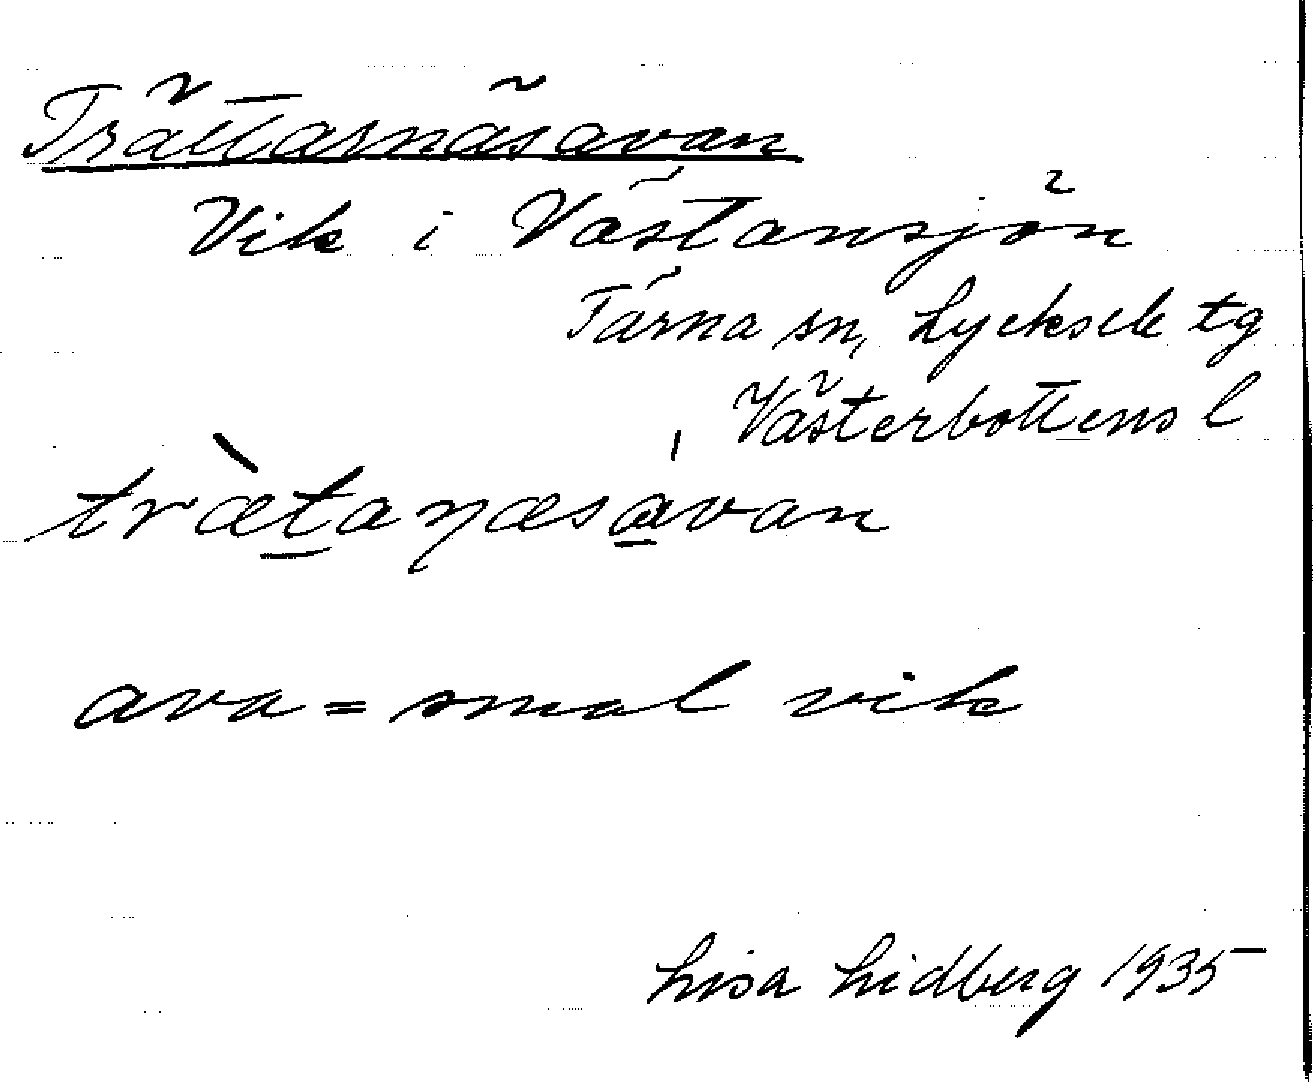 Trättarnäsavan
Vik i Västansjön
Tärna sn, Lycksele tg
Västerbottens l
trætaŋæsavan
ava = smal vik
Lisa Lidberg 1935